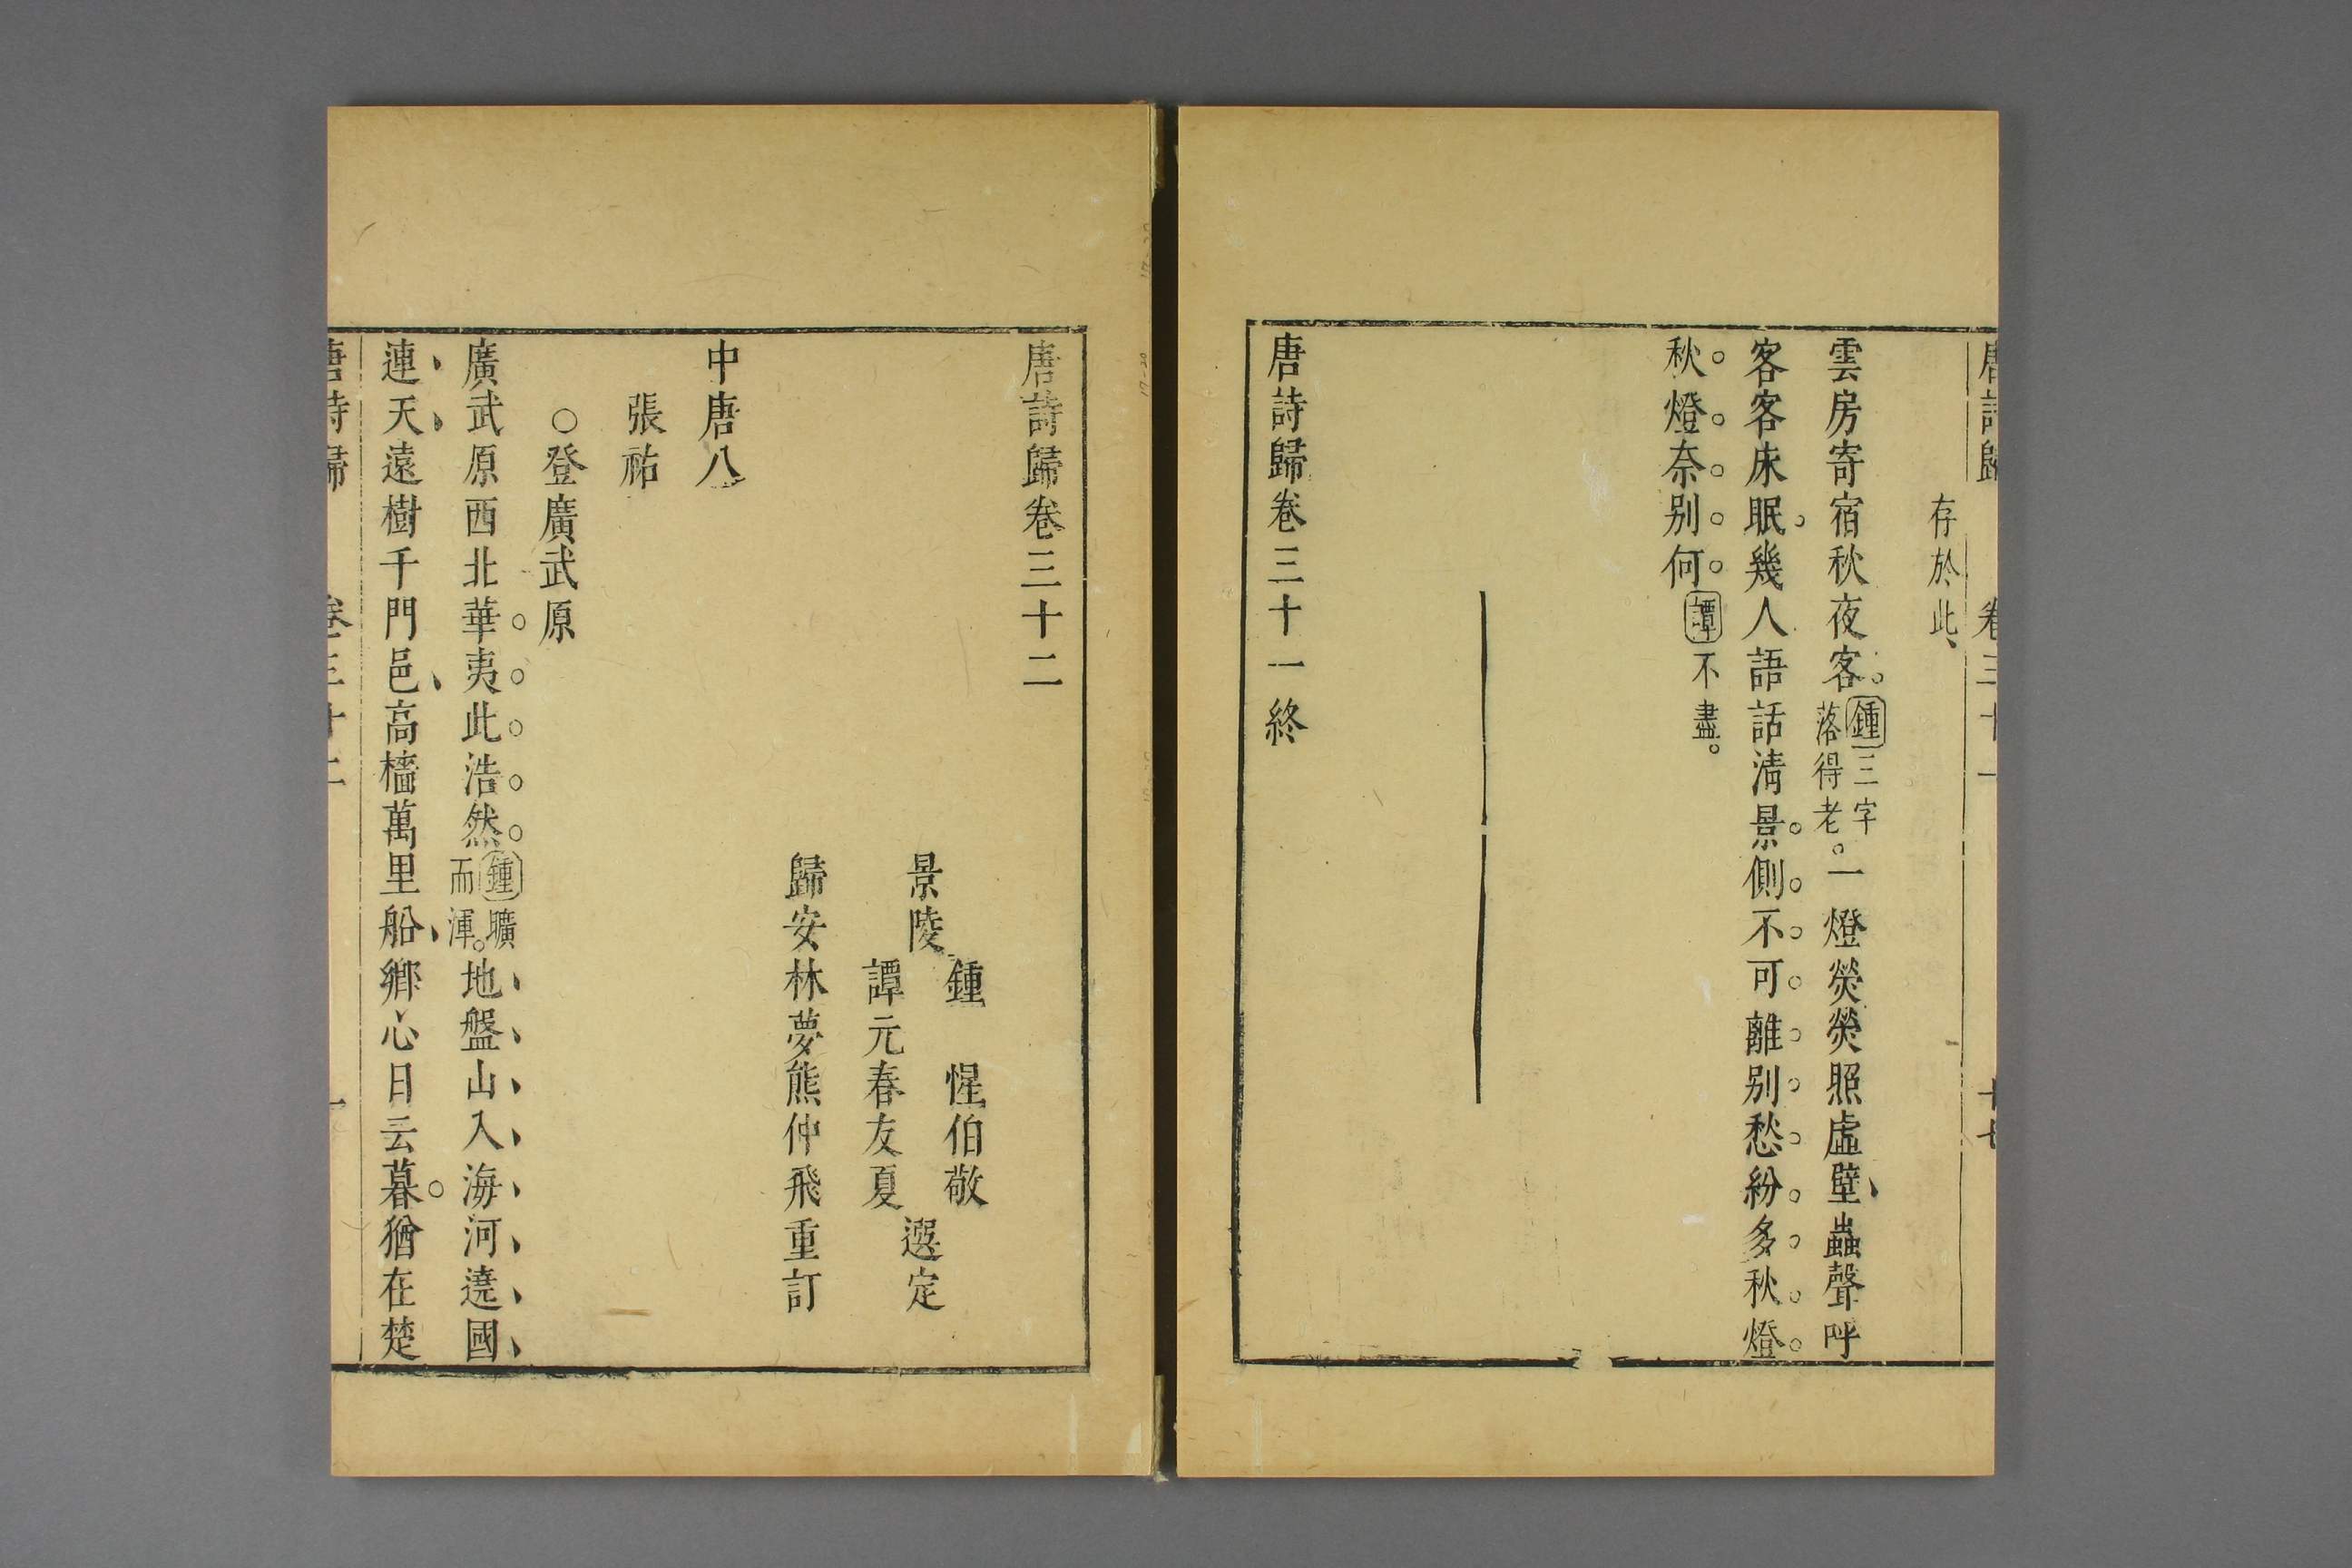 唐詩歸 卷三十一 十七
存於此
雲房寄宿秋夜客鍾三字落得老一燈熒熒照虛壁蟲聲呼
客客床眠幾人語話清景側不可離別愁紛多秋燈
秋燈奈別何譚不盡
唐詩歸卷三十一終
唐詩歸卷三十二
鍾惺伯敬
景陵 選定
譚元春友夏
歸安林夢熊仲飛重訂
中唐八
張祐
○登廣武原
廣武原西北華夷此浩然鍾曠而渾地盤山入海河遶國
連天遠樹千門邑高檣萬里船鄉心日云暮猶在楚
唐詩歸 卷三十二 一